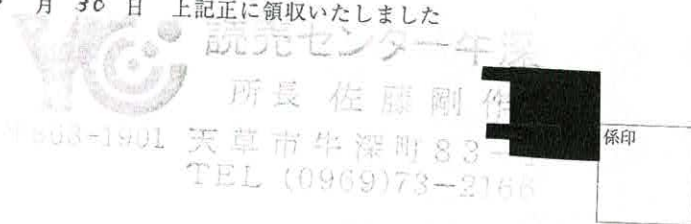 月 30 日 上記正に領収いたしました
YC 読売センター牛深
所長 佐藤剛作
863-1901 天草市牛深町83-
TEL (0969)73-2166
係印